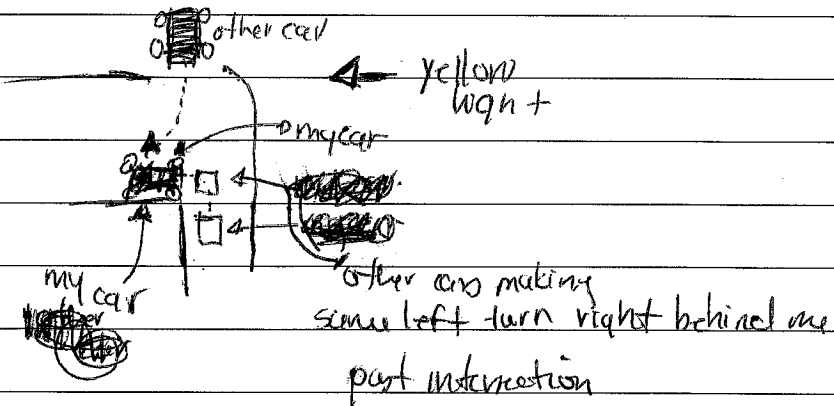 other car
yellow
my car
my car
other cars making
same left turn right behind me
past intersection